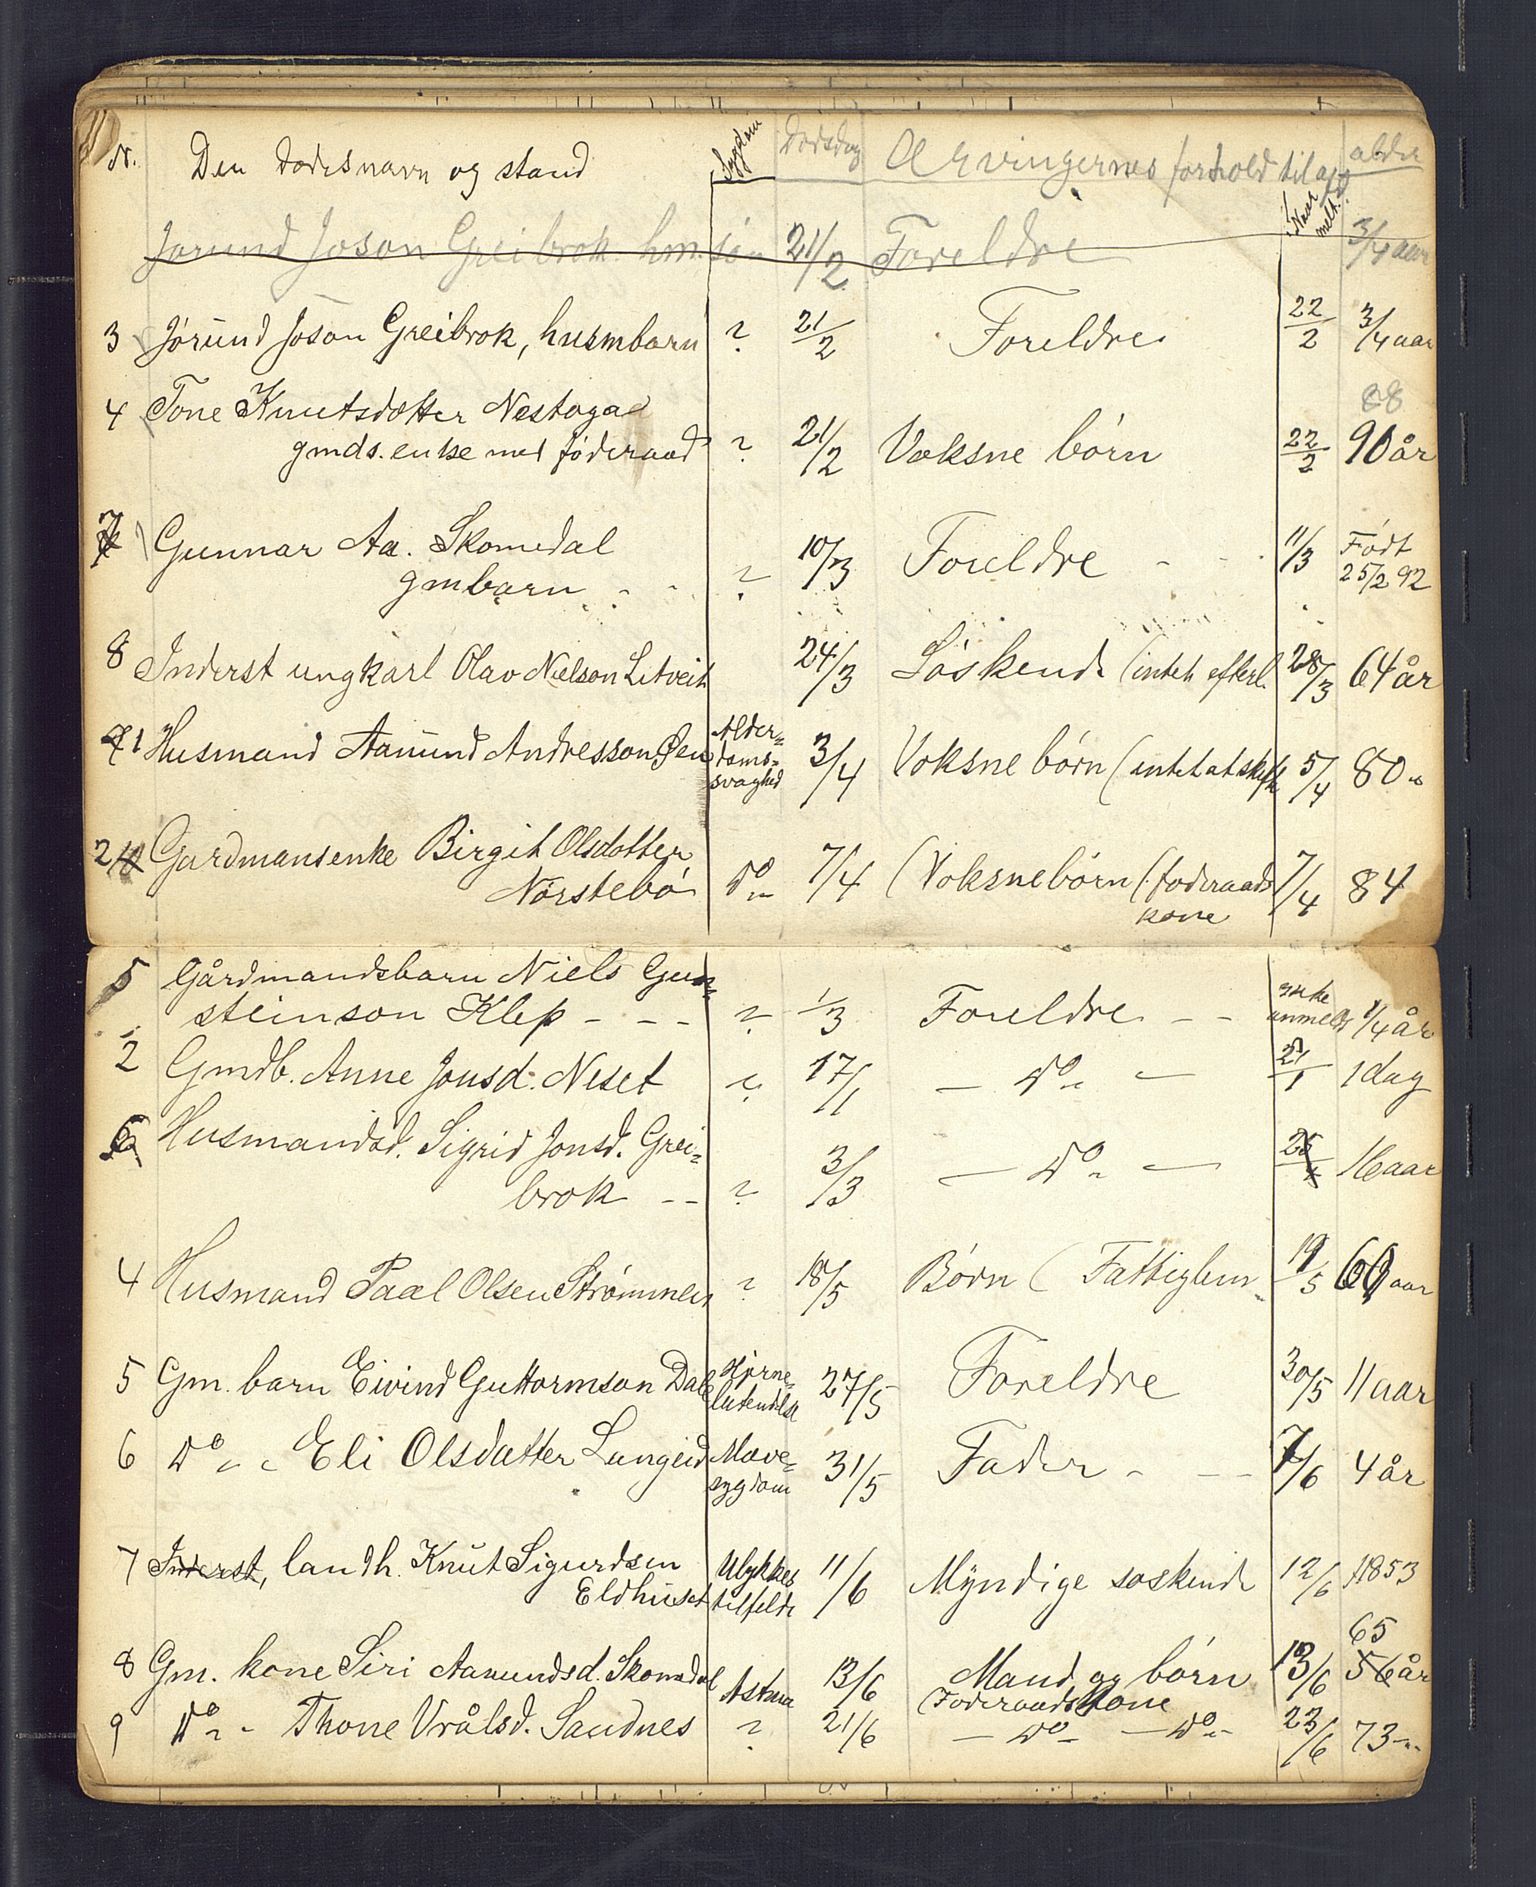 N. Den dødes navn og stand Sygdom Dødsdag Arvingernes forhold til afd. Naar meldt. alder
Jørund Joson Greibrok hm. søn 21/2 Foreldre 3/4 aar
3 Jørund Joson Greibrok, husmbarn ? 21/2 Foreldre 22/2 3/4 aar
88
4 Tone Knutsdotter Nestoga
gmds. enke med føderaad ? 21/2 Voksne børn 22/2 90 år
7 Gunnar Aa. Skomedal 10/3 Foreldre - - 11/3 Født
gmbarn - - ? 25/2 92
8 Inderst ungkarl Olav Nielson Litveit 24/3 Søskende (intet efterl. 28/3 64 år
1 Husmand Aamund Andresson Øen Alder-
doms-
svaghed 3/4 Voksne børn (intet at skifte 5/4 80 "
2 Gardmansenke Birgit Olsdotter
Nørstebø Do " 7/4 (Voksne børn (føderaads 7/4 84
kone
5 Gårdmandsbarn Niels Gun-
steinson Klep - - - ? 1/3 Foreldre - - ikke
anmeldt 1/4 år
2 Gmdb. Anne Jonsd. Neset ? 17/1 — Do " — 21/1 1 dag
6 Husmandsd. Sigrid Jonsd. Grei-
brok - - ? 3/3 — Do " — 16 aar
4 Husmand Paal Olsen Strømmen ? 18/5 Børn (Fattiglem 19/5 60 aar
5 Gm. barn Eivind Guttormson Dale Hjerne-
betendelse 27/5 Foreldre 30/5 11 aar
6 Do " " Eli Olsdatter Langeid Mave-
sygdom 31/5 Fader - - - 7/6 4 år
7 Inderst, landh. Knut Sigurdsen
Eldhuset Ulykkes
tilfelde 11/6 Myndige søskende 12/6 1853
65
8 Gm. kone Siri Aamundsd. Skomedal Astma 13/6 Mand og børn 13/6 56 år
Føderaadskone
9 Do " - Thone Vrålsd. Sandnes ? 21/6 — Do - — Do " - 23/6 73 - "